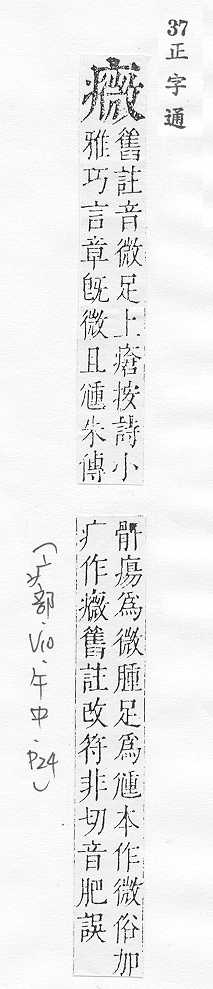 37正字通
癓
舊註音微足上瘡按詩小
雅巧言章旣微且尰朱傳
骭瘍爲微腫足爲尰本作微俗加
疒作癓舊註改符非切音肥誤
(疒部·V10·午中·P24)